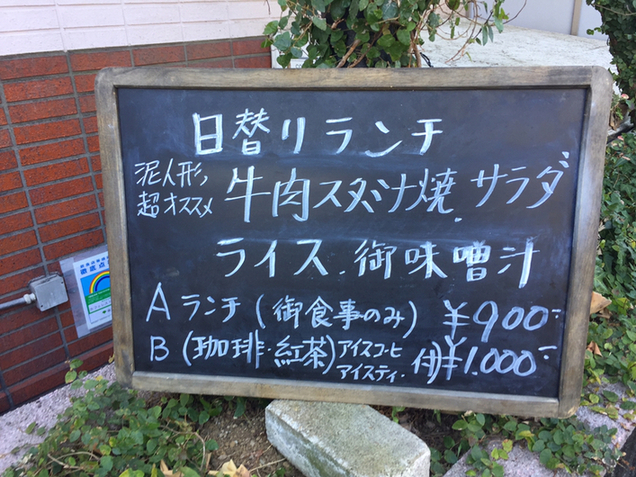 日替りランチ
泥人形,
超オススメ
牛肉スタミナ焼.サラダ
ライス.御味噌汁
Aランチ(御食事のみ)¥900-
B(珈琲・紅茶)アイスコーヒ
アイスティ.付)¥1.000-